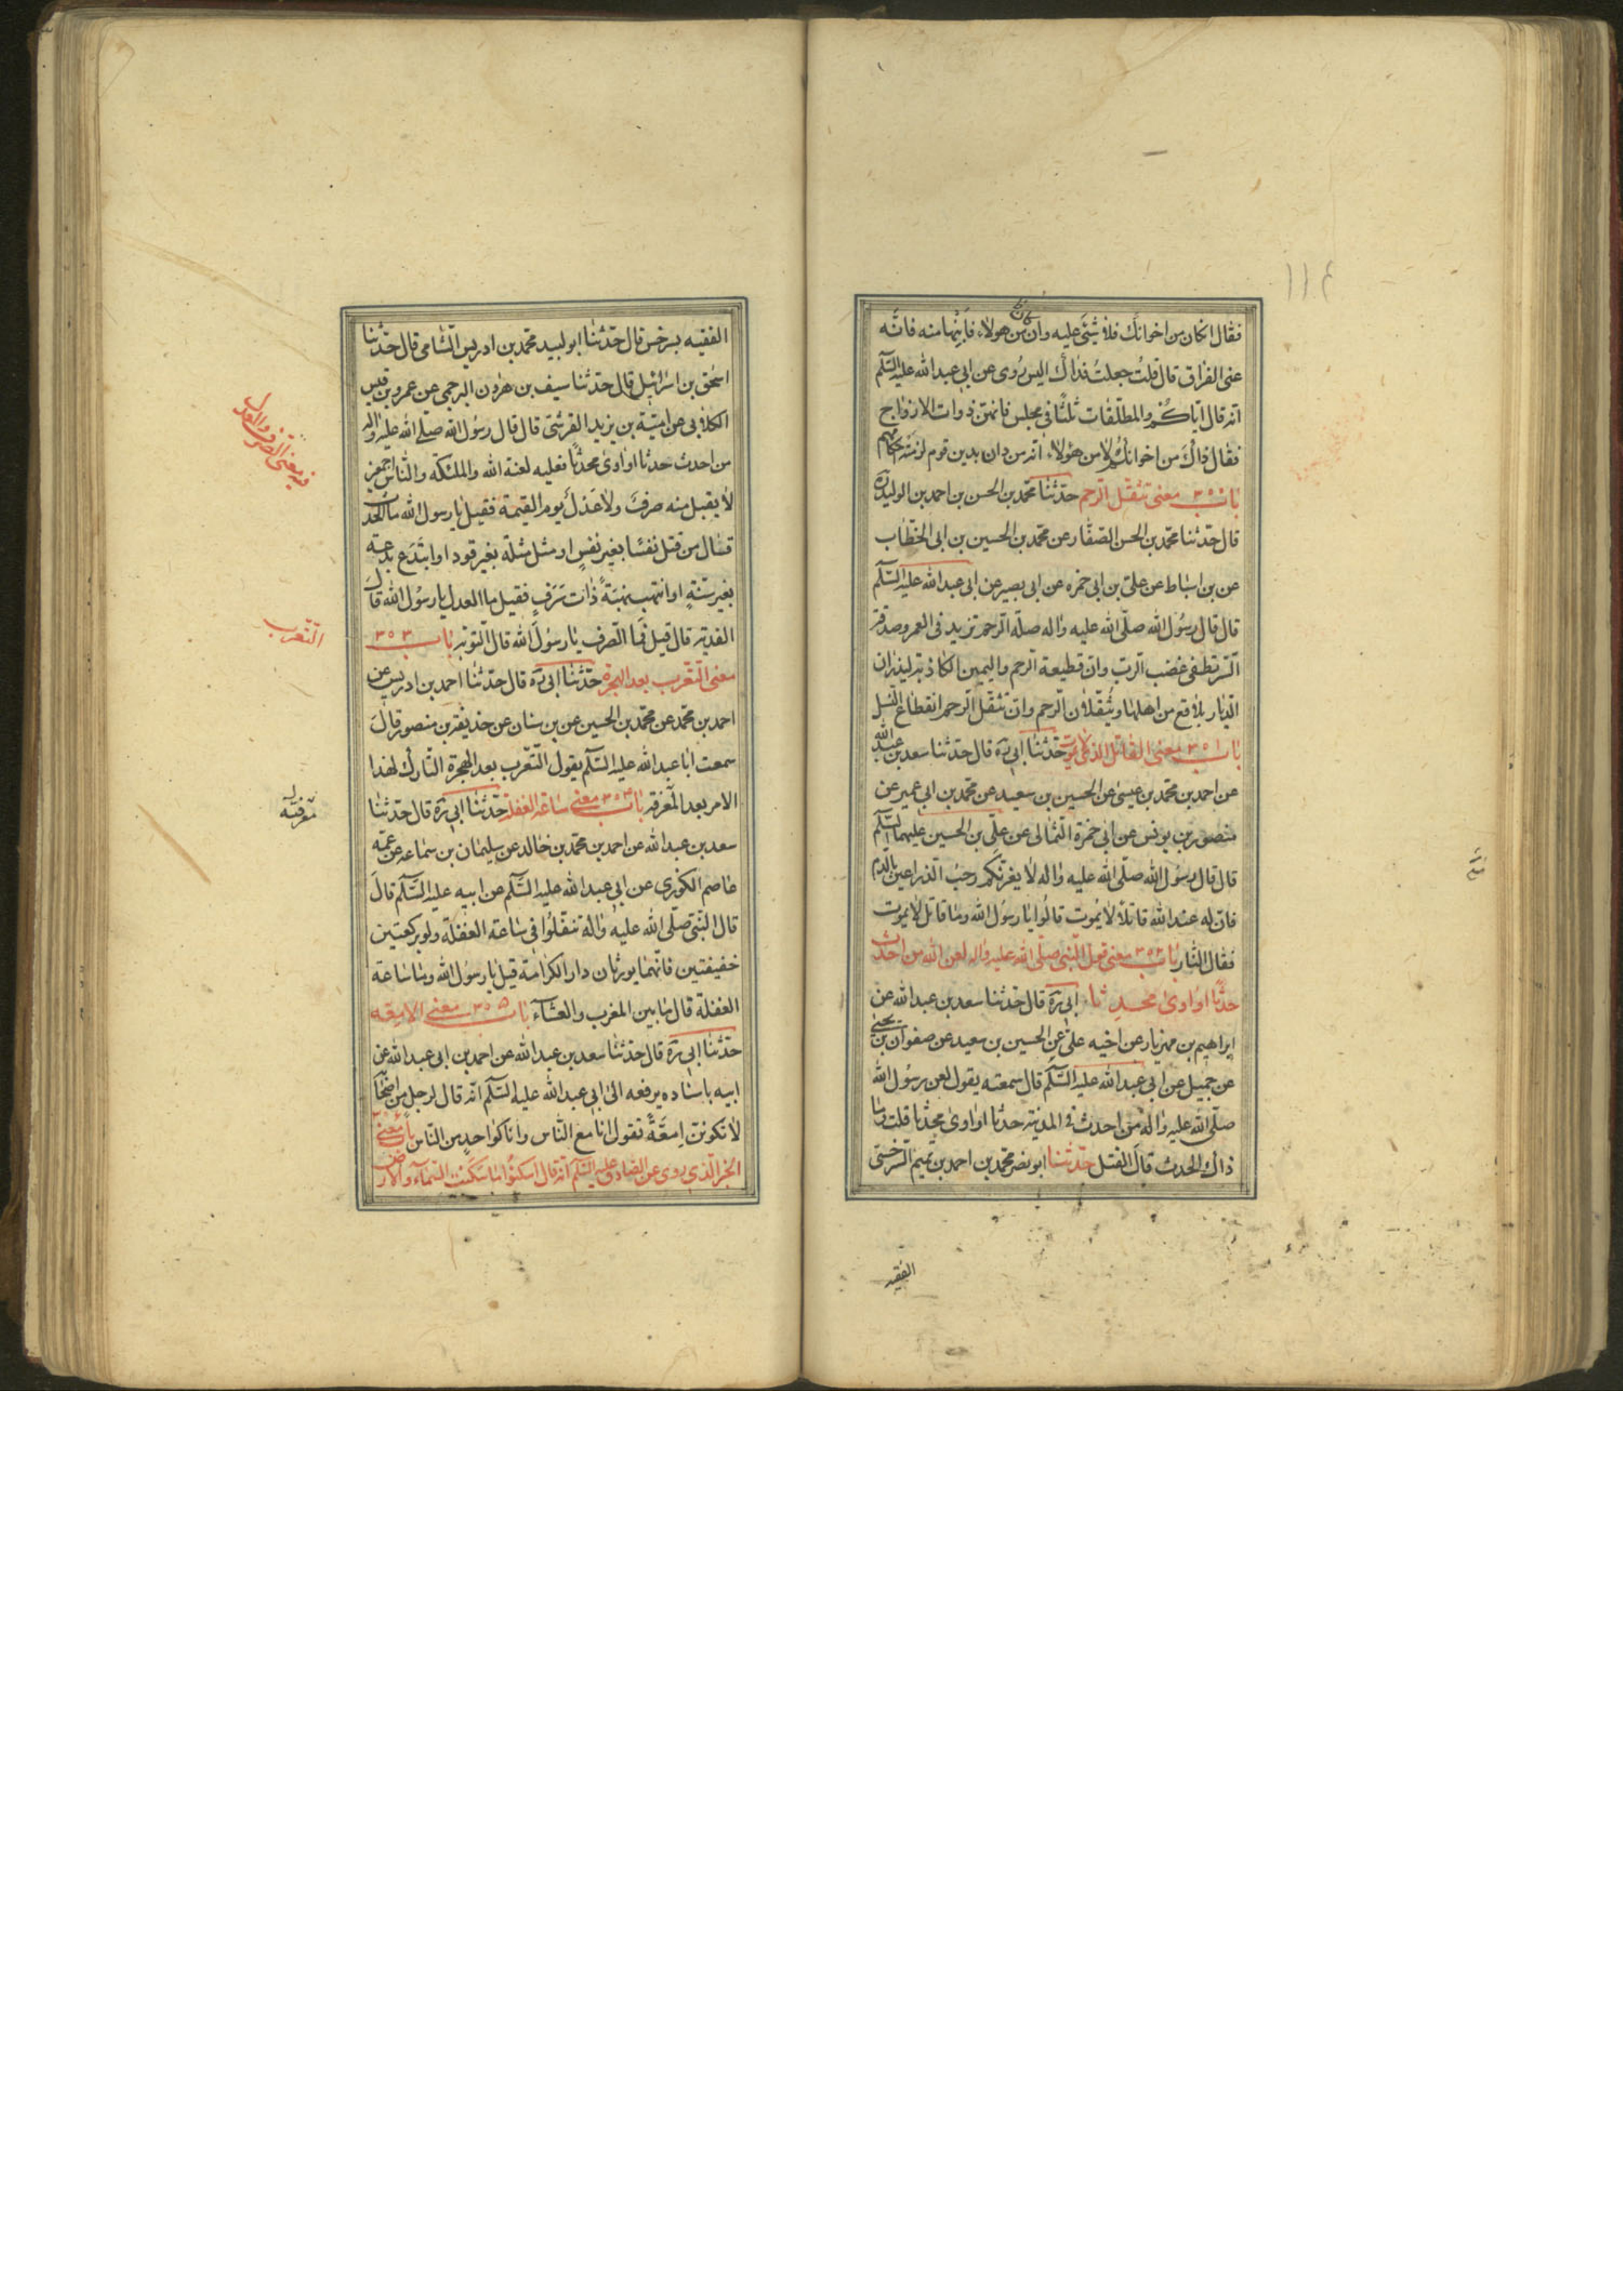 فقال ان كان من اخوانك فلا شئ عليه وان كان من هولاء فابنها منه فانه
عنى الفراق قال قلت جعلت فداك اليس روى عن ابي عبد الله عليه السلم
انه قال اياكم والمطلقات ثلثا في مجلس فانهن ذوات الازواج
فقال ذاك من اخوانكم لا من هؤلاء انه من دان بدين قوم لزمته احكامهم
باب ٣٥٠ معنى تثقل الرحم حدثنا محمد بن الحسن بن احمد بن الوليد ره
قال حدثنا محمد بن الحسن الصفار عن محمد بن الحسين بن ابى الخطاب
عن بن اسباط عن علي بن ابي حمزه عن ابى بصير عن ابى عبد الله عليه السلم
قال قال رسول الله صلى الله عليه واله صلة الرحم تزيد فى العمر وصدقة
السر تطفى غضب الرب وان قطيعة الرحم واليمين الكاذبة ليذران
الديار بلاقع من اهلها ويثقلان الرحم وان تثقل الرحم انقطاع النسل
باب ٣٥١ معنى القاتل الذى لا يموت حدثنا ابي ره قال حدثنا سعد بن عبد الله
عن احمد بن محمد بن عيسى عن الحسين بن سعيد عن محمد بن ابي عمير عن
منصور بن يونس عن ابي حمزة الثمالى عن علي بن الحسين عليهما السلم
قال قال رسول الله صلى الله عليه واله لا يغرنكم رحب الذراعين بالدم
فان له عند الله قاتلا لا يموت قالوا يا رسول الله وما قاتل لا يموت
فقال النار باب ٣٥٢ معنى قول النبي صلى الله عليه واله لعن الله من احدث
حدثا او اوى محدثا ابي ره قال حدثنا سعد بن عبد الله عن
ابراهيم بن مهزيار عن اخيه علي عن الحسين بن سعيد عن صفوان بن يحيى
عن جميل عن ابي عبد الله عليه السلم قال سمعته يقول لعن رسول الله
صلى الله عليه واله من احدث في المدينة حدثا او اوى محدثا قلت وما
ذاك الحدث قال القتل حدثنا ابو نصر محمد بن احمد بن تميم السرخسى
الفقيه
الفقيه بسرخس قال حدثنا ابو لبيد محمد بن ادريس الشامى قال حدثنا
اسحق بن اسرائيل قال حدثنا سيف بن هرون البرجمى عن عمرو بن قيس
الكلابى عن امية بن يزيد القرشى قال قال رسول الله صلى الله عليه واله
من احدث حدثا او اوى محدثا فعليه لعنة الله والملئكة والناس اجمعين
لا يقبل منه صرف ولا عدل يوم القيمة فقيل يا رسول الله ما الحدث
قال من قتل نفسا بغير نفس او مثل مثلة بغير قود او ابتدع بدعة
بغير سنة او انتهب نهبة ذات شرف فقيل ما العدل يا رسول الله قال
الفدية قال قيل فما الصرف يا رسول الله قال التوبة باب ٣٥٣
معنى التعرب بعد الهجرة حدثنا ابي ره قال حدثنا احمد بن ادريس عن
احمد بن محمد عن محمد بن الحسين عن بن سنان عن حذيفة بن منصور قال
سمعت ابا عبد الله عليه السلم يقول التعرب بعد الهجرة التارك لهذا
الامر بعد المعرفة باب ٣٥٤ معنى ساعة الغفلة حدثنا ابي ره قال حدثنا
سعد بن عبد الله عن احمد بن محمد بن خالد عن سليمان بن سماعه عن عمه
عاصم الكوزى عن ابي عبد الله عليه السلم عن ابيه عليه السلم قال
قال النبي صلى الله عليه واله تنفلوا فى ساعة الغفلة ولو بركعتين
خفيفتين فانهما يورثان دار الكرامة قيل يا رسول الله وما ساعة
الغفلة قال ما بين المغرب والعشاء باب ٣٥٥ معنى الامعه
حدثنا ابي ره قال حدثنا سعد بن عبد الله عن احمد بن ابى عبد الله عن
ابيه باسناده يرفعه الى ابي عبد الله عليه السلم انه قال لرجل من اصحابه
لا تكونن امعة تقول انا مع الناس وانا كواحد من الناس باب معنى
الخبر الذي روى عن الصادق عليه السلم انه قال اسكنوا ما سكنت السماء والارض
فيه معنى الصرف والعدل
التعرب
معرفته